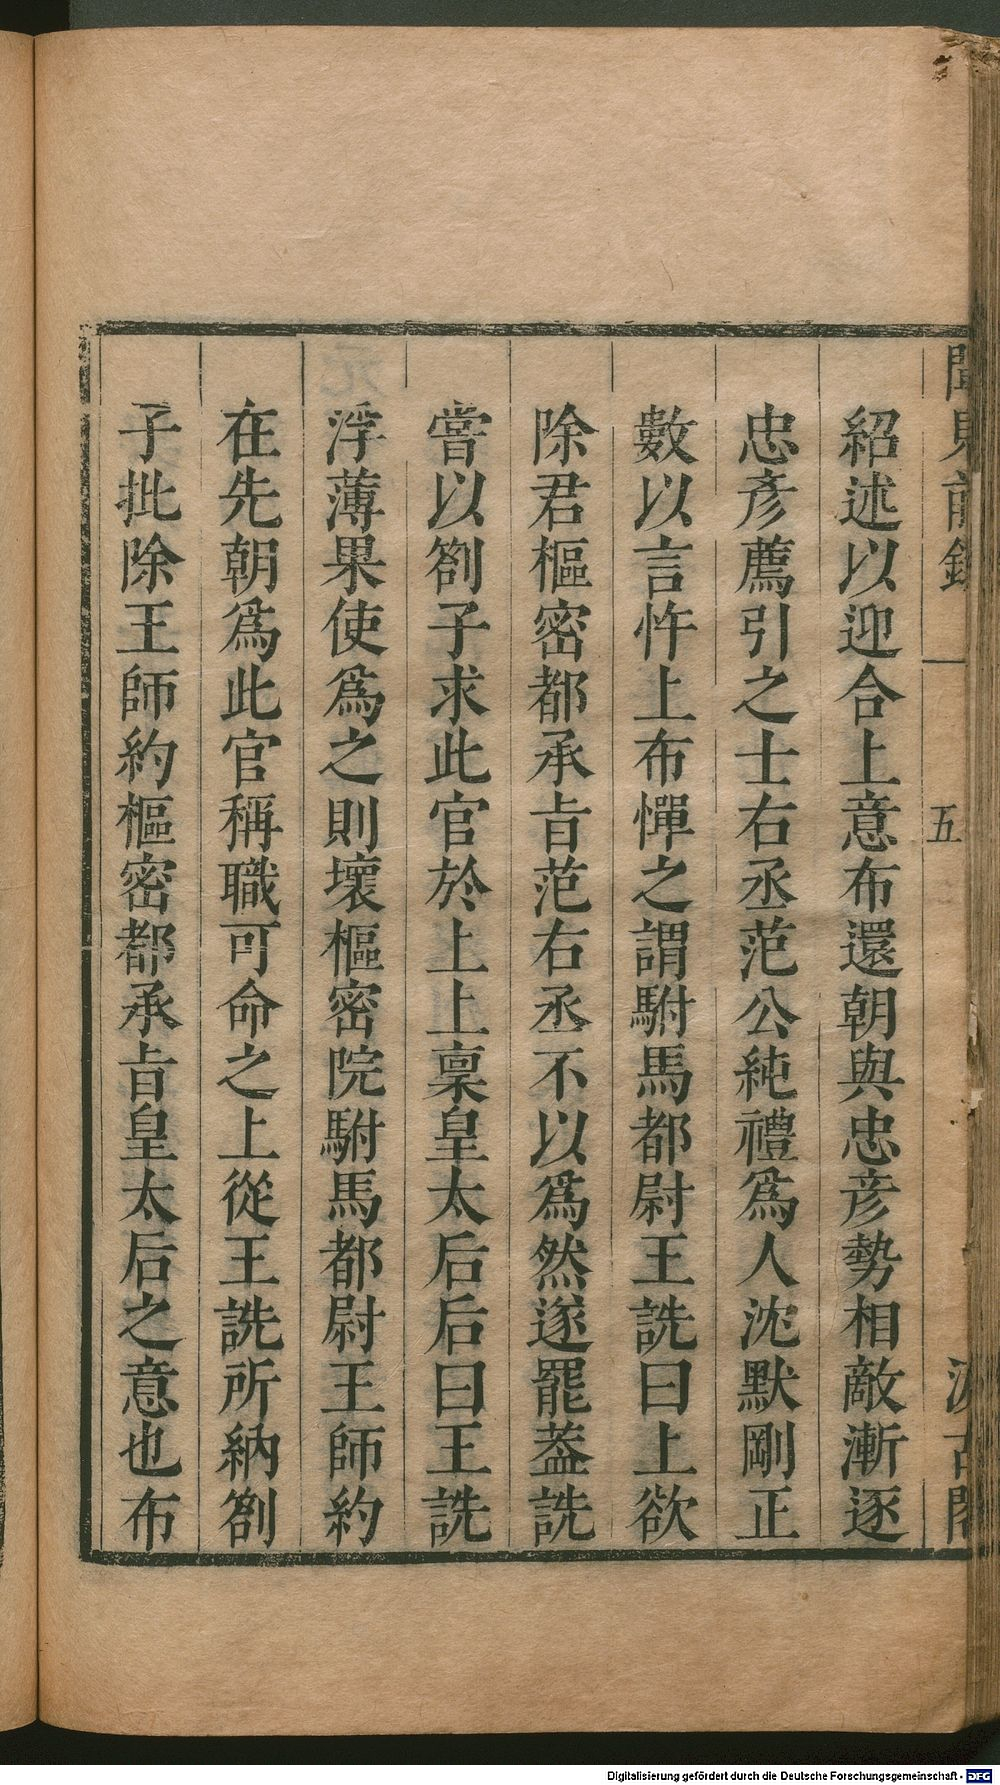 聞見前錄
五
汲古閣
紹述以迎合上意布還朝與忠彥勢相敵漸逐
忠彥薦引之士右丞范公純禮爲人沈默剛正
數以言忤上布憚之謂駙馬都尉王詵曰上欲
除君樞密都承旨范右丞不以爲然遂罷葢詵
嘗以劄子求此官於上上稟皇太后后曰王詵
浮薄果使爲之則壞樞密院駙馬都尉王師約
在先朝爲此官稱職可命之上從王詵所納劄
子批除王師約樞密都承旨皇太后之意也布
Digitalisierung gefördert durch die Deutsche Forschungsgemeinschaft - DFG